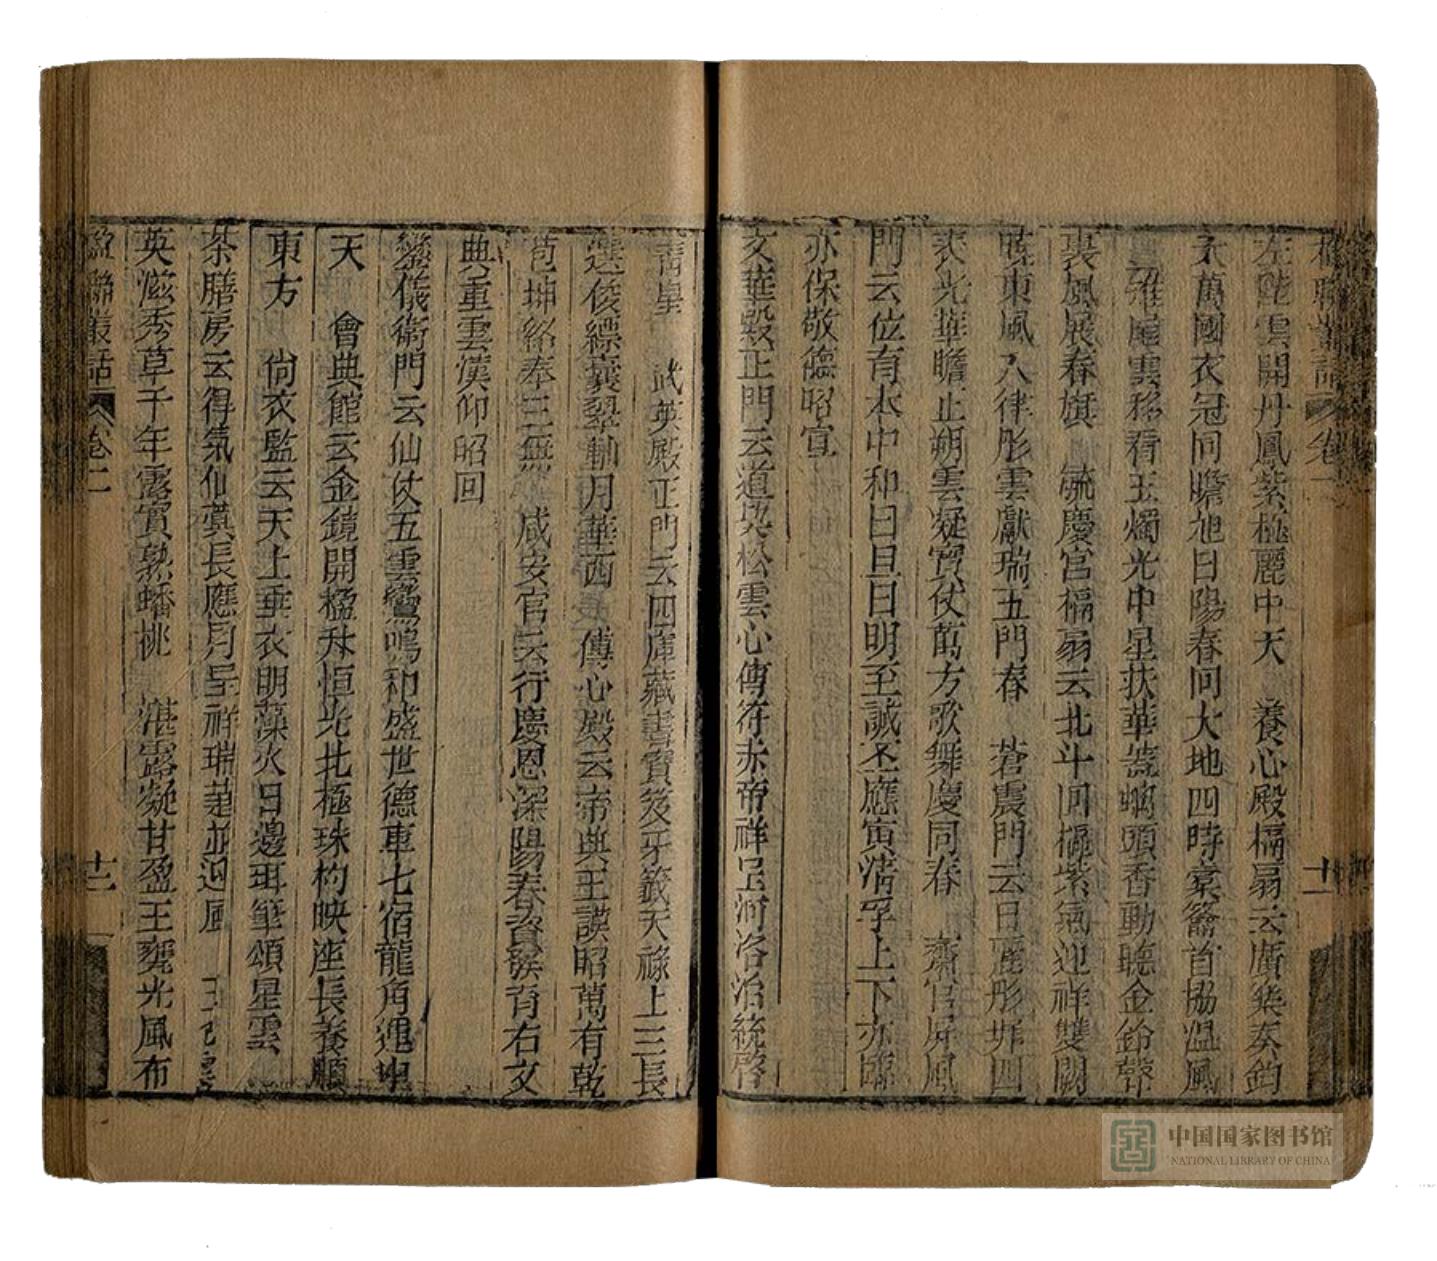 楹聯叢話 卷二 十一
左陛雲開丹鳳紫極麗中天　養心殿槅扇云廣樂奏鈞
天萬國衣冠同瞻旭日陽春回大地四時橐籥首協溫風
雉尾雲移看玉燭光中星扶華蓋螭頭香動聽金鈴聲
裏風展春旗　毓慶宮槅扇云北斗回樞紫氣迎祥雙闕
曉東風入律彤雲獻瑞五門春　蒼震門云日麗彤墀四
表光華瞻正朔雲凝寶仗萬方歌舞慶同春　齋宮屏風
門云位育本中和日旦日明至誠丕應寅清孚上下亦臨
亦保敬臨昭宣
文華殿正門云道與松雲心傳符赤帝祥呈河洛治統啓
青皇　武英殿正門云四庫藏書寶笈牙籤天祿上三長
選俊縹囊翠軸月華西　傳心殿云帝典王謨昭萬有乾
苞坤絡奉三無　咸安宮云行慶恩深陽春資發育右文
典重雲漢仰昭回
鑾儀衛門云仙仗五雲鸞鳴和盛世德車七宿龍角進中
天　會典館云金鏡開楹升恒光北極珠杓映座長養順
東方　尚衣監云天上垂衣明藻火日邊珥筆頌星雲
茶膳房云得氣仙蓂長應月呈祥瑞萐並迎風　玉
英滋秀草千年露實熟蟠桃　湛露凝甘盈玉甕光風布
楹聯叢話 卷二 十二